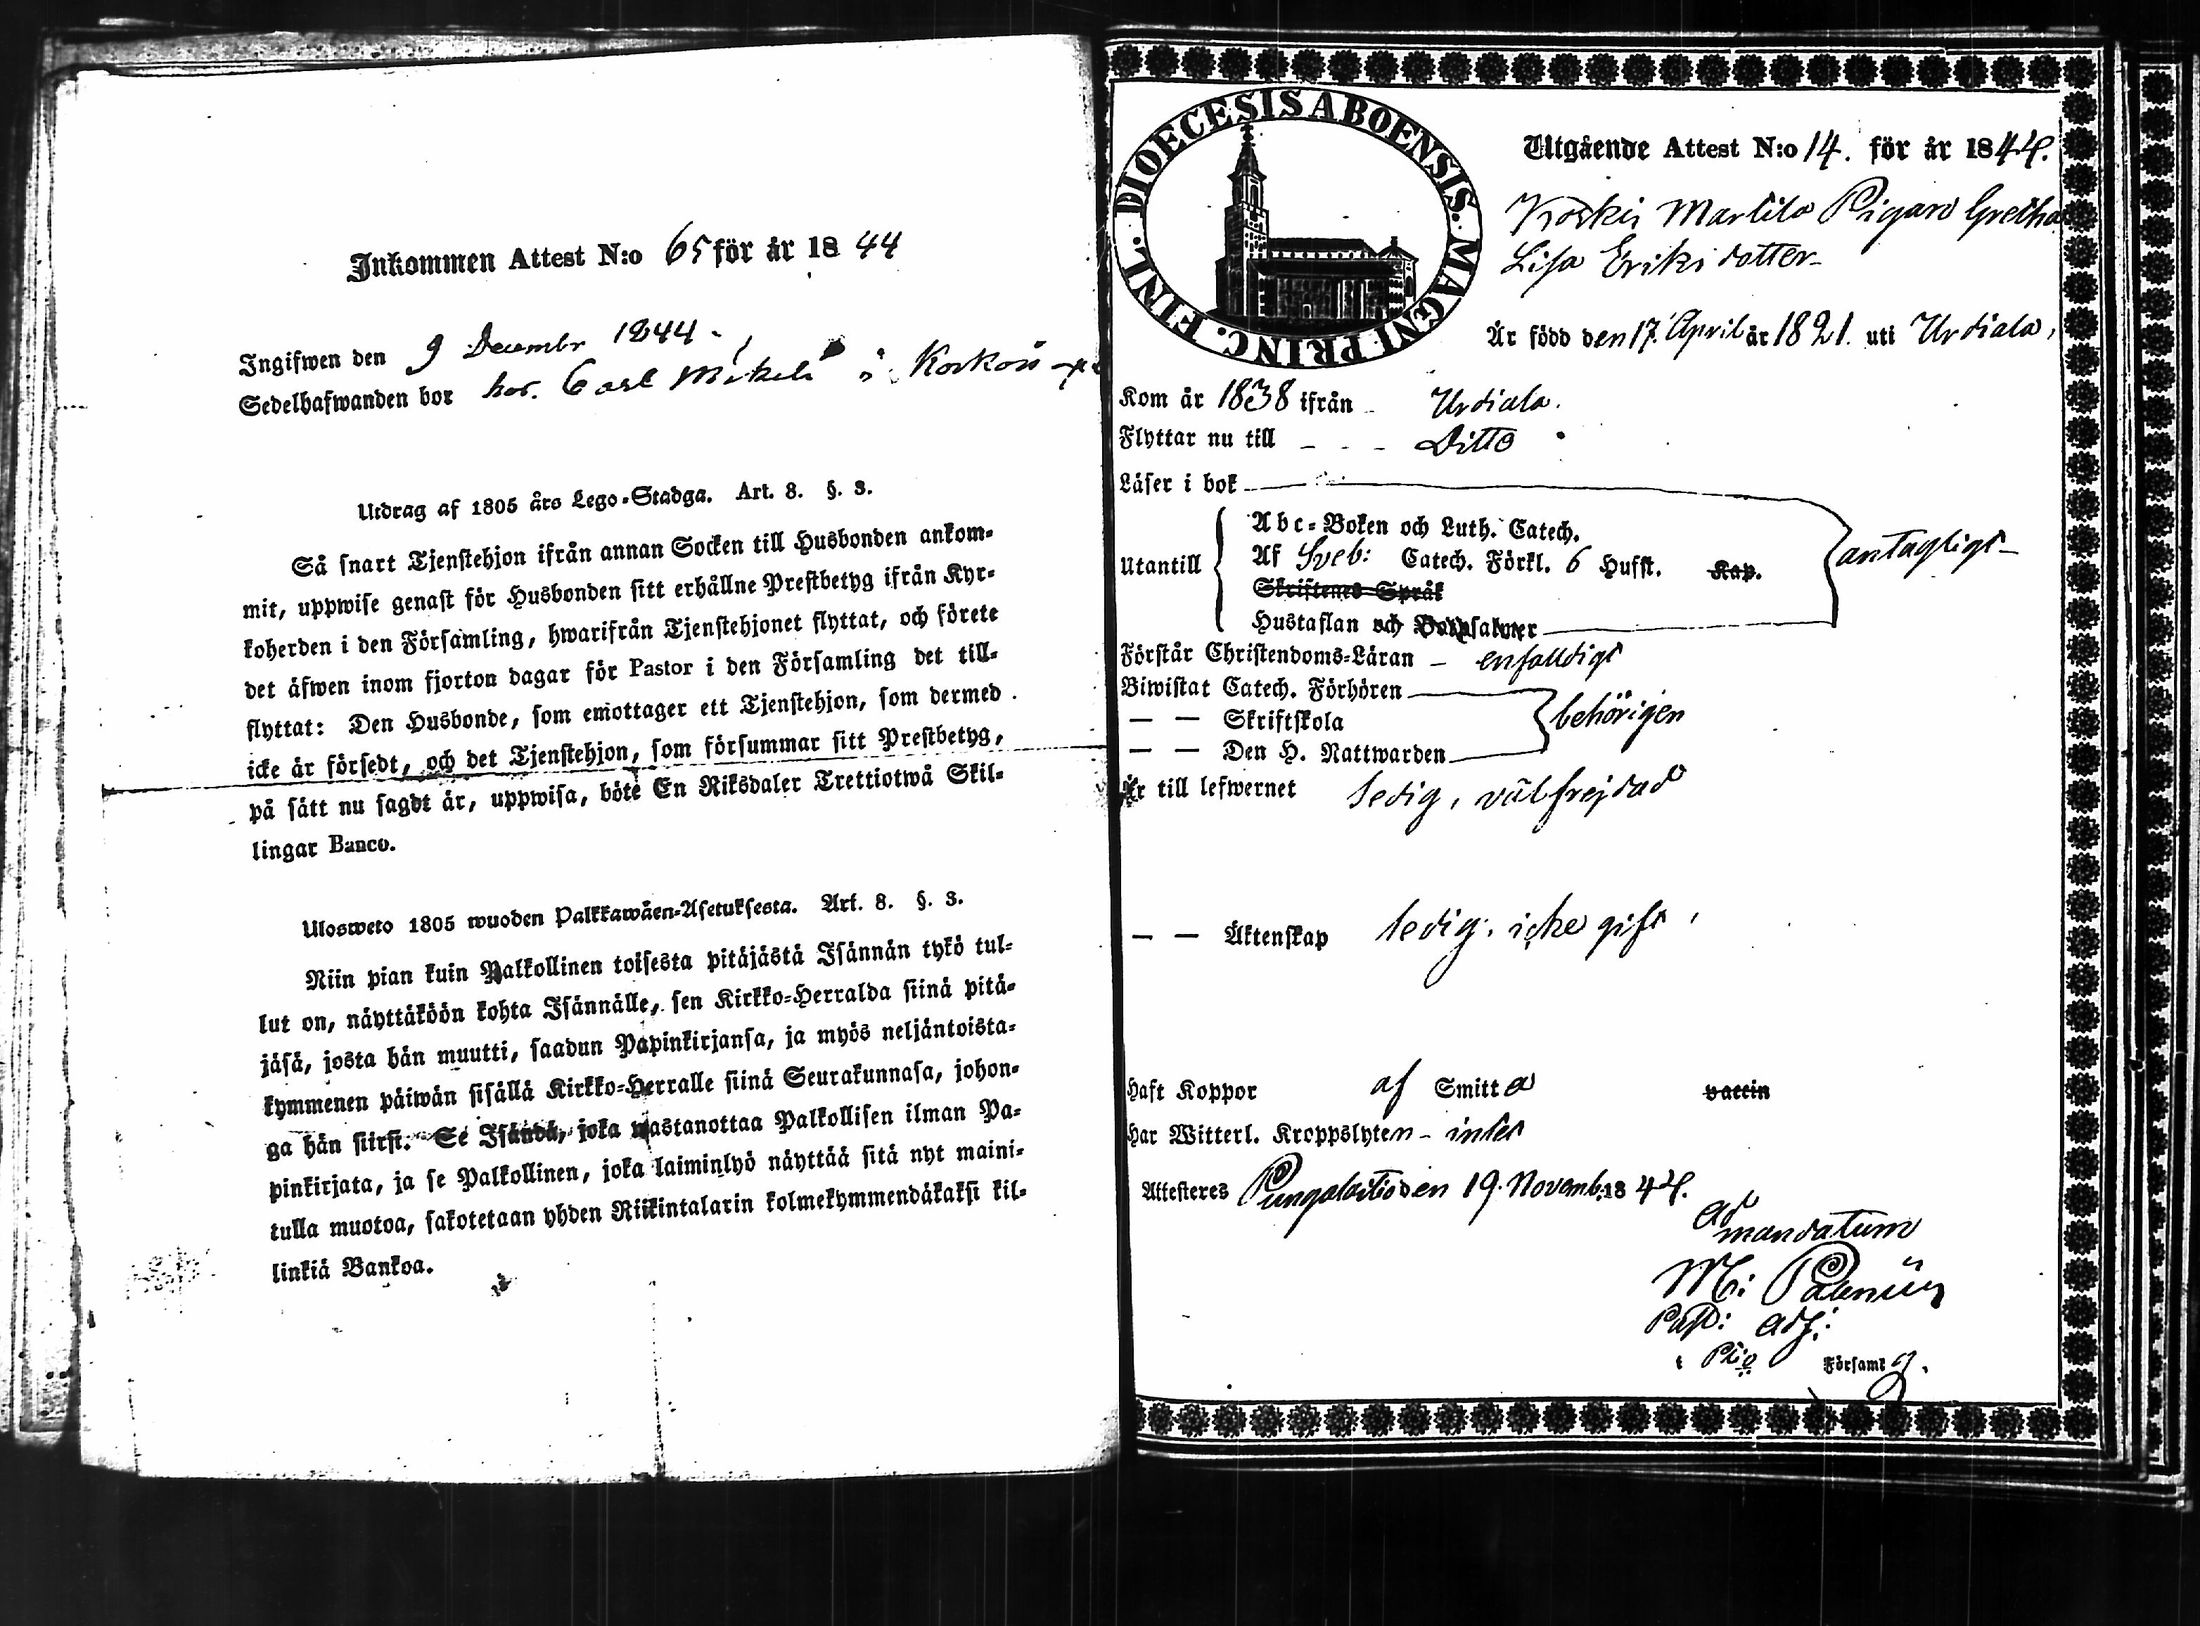 Inkommen Attest N:o 65 för år 1844
Ingifwen den 9 Decembr 1844.
Sedelhafwanden bor hos Carl Mikels i
Utdrag af 1805 års Lego-Stadga. Art. 8. §. 3.
Så snart Tjenstehjon ifrån annan Socken till Husbonden ankom-
mit, uppwise genast för Husbonden sitt erhållne Prestbetyg ifrån Kyr-
koherden i den Församling, hwarifrån Tjenstehjonet flyttat, och förete
det äfwen inom fjorton dagar för Pastor i den Församling det till-
flyttat: Den Husbonde, som emottager ett Tjenstehjon, som dermed
icke är försedt, och det Tjenstehjon, som försummar sitt Prestbetyg,
på sätt nu sagdt är, uppwisa, böte En Riksdaler Trettiotwå Skil-
lingar Banco.
Ulosweto 1805 wuoden Palkkawäen-Asetuksesta. Art. 8. §. 3.
Niin pian kuin Palkollinen toisesta pitäjästä Isännän tykö tul-
lut on, näyttäköön kohta Isännälle, sen Kirkko-Herralda siinä pitä-
jäsä, josta hän muutti, saadun Papinkirjansa, ja myös neljäntoista-
kymmenen päiwän sisällä Kirkko-Herralle siinä Seurakunnasa, johon-
ga hän siirsi. Se Isändä, joka wastanottaa Palkollisen ilman Pa-
pinkirjata, ja se Palkollinen, joka laiminlyö näyttää sitä nyt maini-
tulla muotoa, sakotetaan yhden Riikintalarin kolmekymmendäkaksi kil-
linkiä Bankoa.
DIOECESIS ABOENSIS. MAGNI PRINC. FINL.
Utgående Attest N:o 14. för år 1844.
Koskis Marttila Pigan Gretha
Lisa Eriksdotter
Är född den 17 April år 1821. uti Urdiala,
Kom år 1838 ifrån Urdiala.
Flyttar nu till - - - Ditto
Läser i bok
Abc-Boken och Luth. Catech.
Utantill Af Sveb: Catech. Förkl. 6 Hufst. Kap. antagligt
Skriftenes Språk
Hustaflan och Botpsalmer
Förstår Christendoms-Läran - enfalldigt
Biwistat Catech. Förhören
— — Skriftskola behörigen
— — Den H. Nattwarden
Är till lefwernet ledig, välfrejdad
— — Äktenskap ledig, icke gift,
Haft Koppor af Smitta vaccin
Har Witterl. Kroppslyten - intet
Attesteres Pungalaitio den 19. Novemb. 1844.
ad
mandatum
M:
Past: adj:
i Församl g.